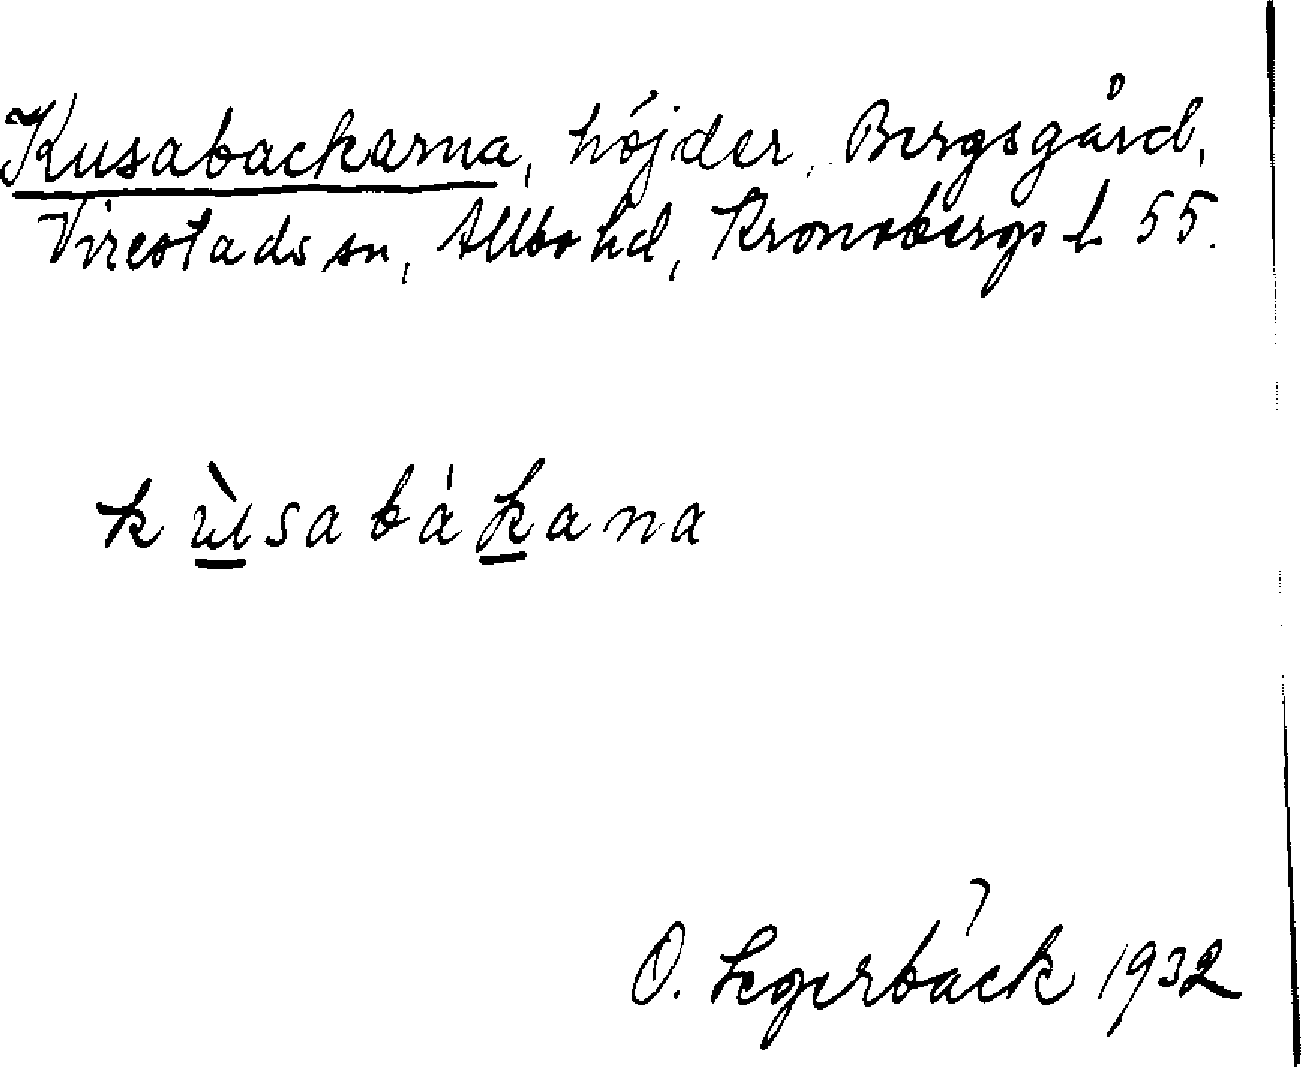 Kusabackarna, höjder, Bergsgård,
Virestads sn, Allbo hd, Kronobergs l 55.
kùsabákana
O. Legerbäck 1932